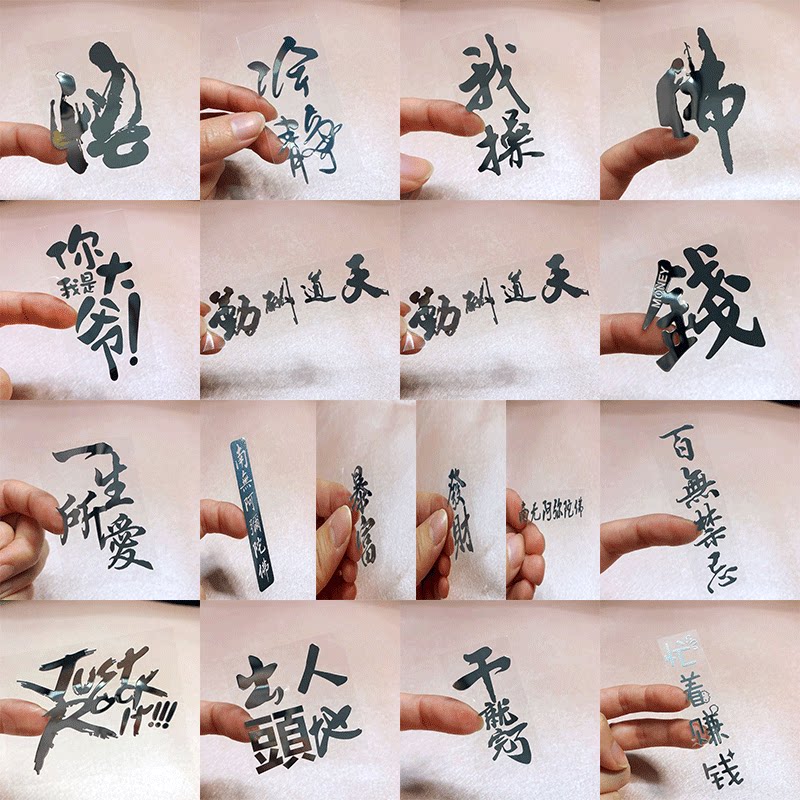 悟
冷静
我操
佛
你大爷!
我是
天道酬勤
天道酬勤
錢
MONEY
一生
所愛
南無阿彌陀佛
暴富
發財
南无阿弥陀佛
百無禁忌
Just
Rock
it!!!
出人
頭地
干就完了
忙着赚钱